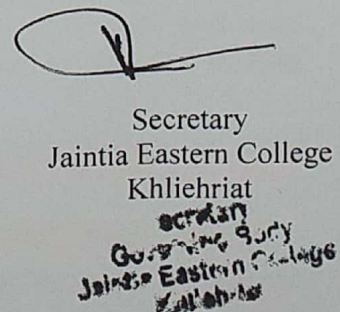 Secretary
Jaintia Eastern College
Khliehriat
ecretary
Governing Body
Jaintia Eastern College
Khliehriat